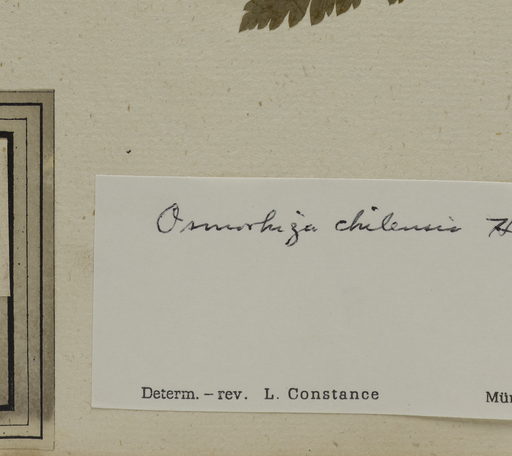 Osmorhiza chilensis H
Determ. – rev. L. Constance Mün